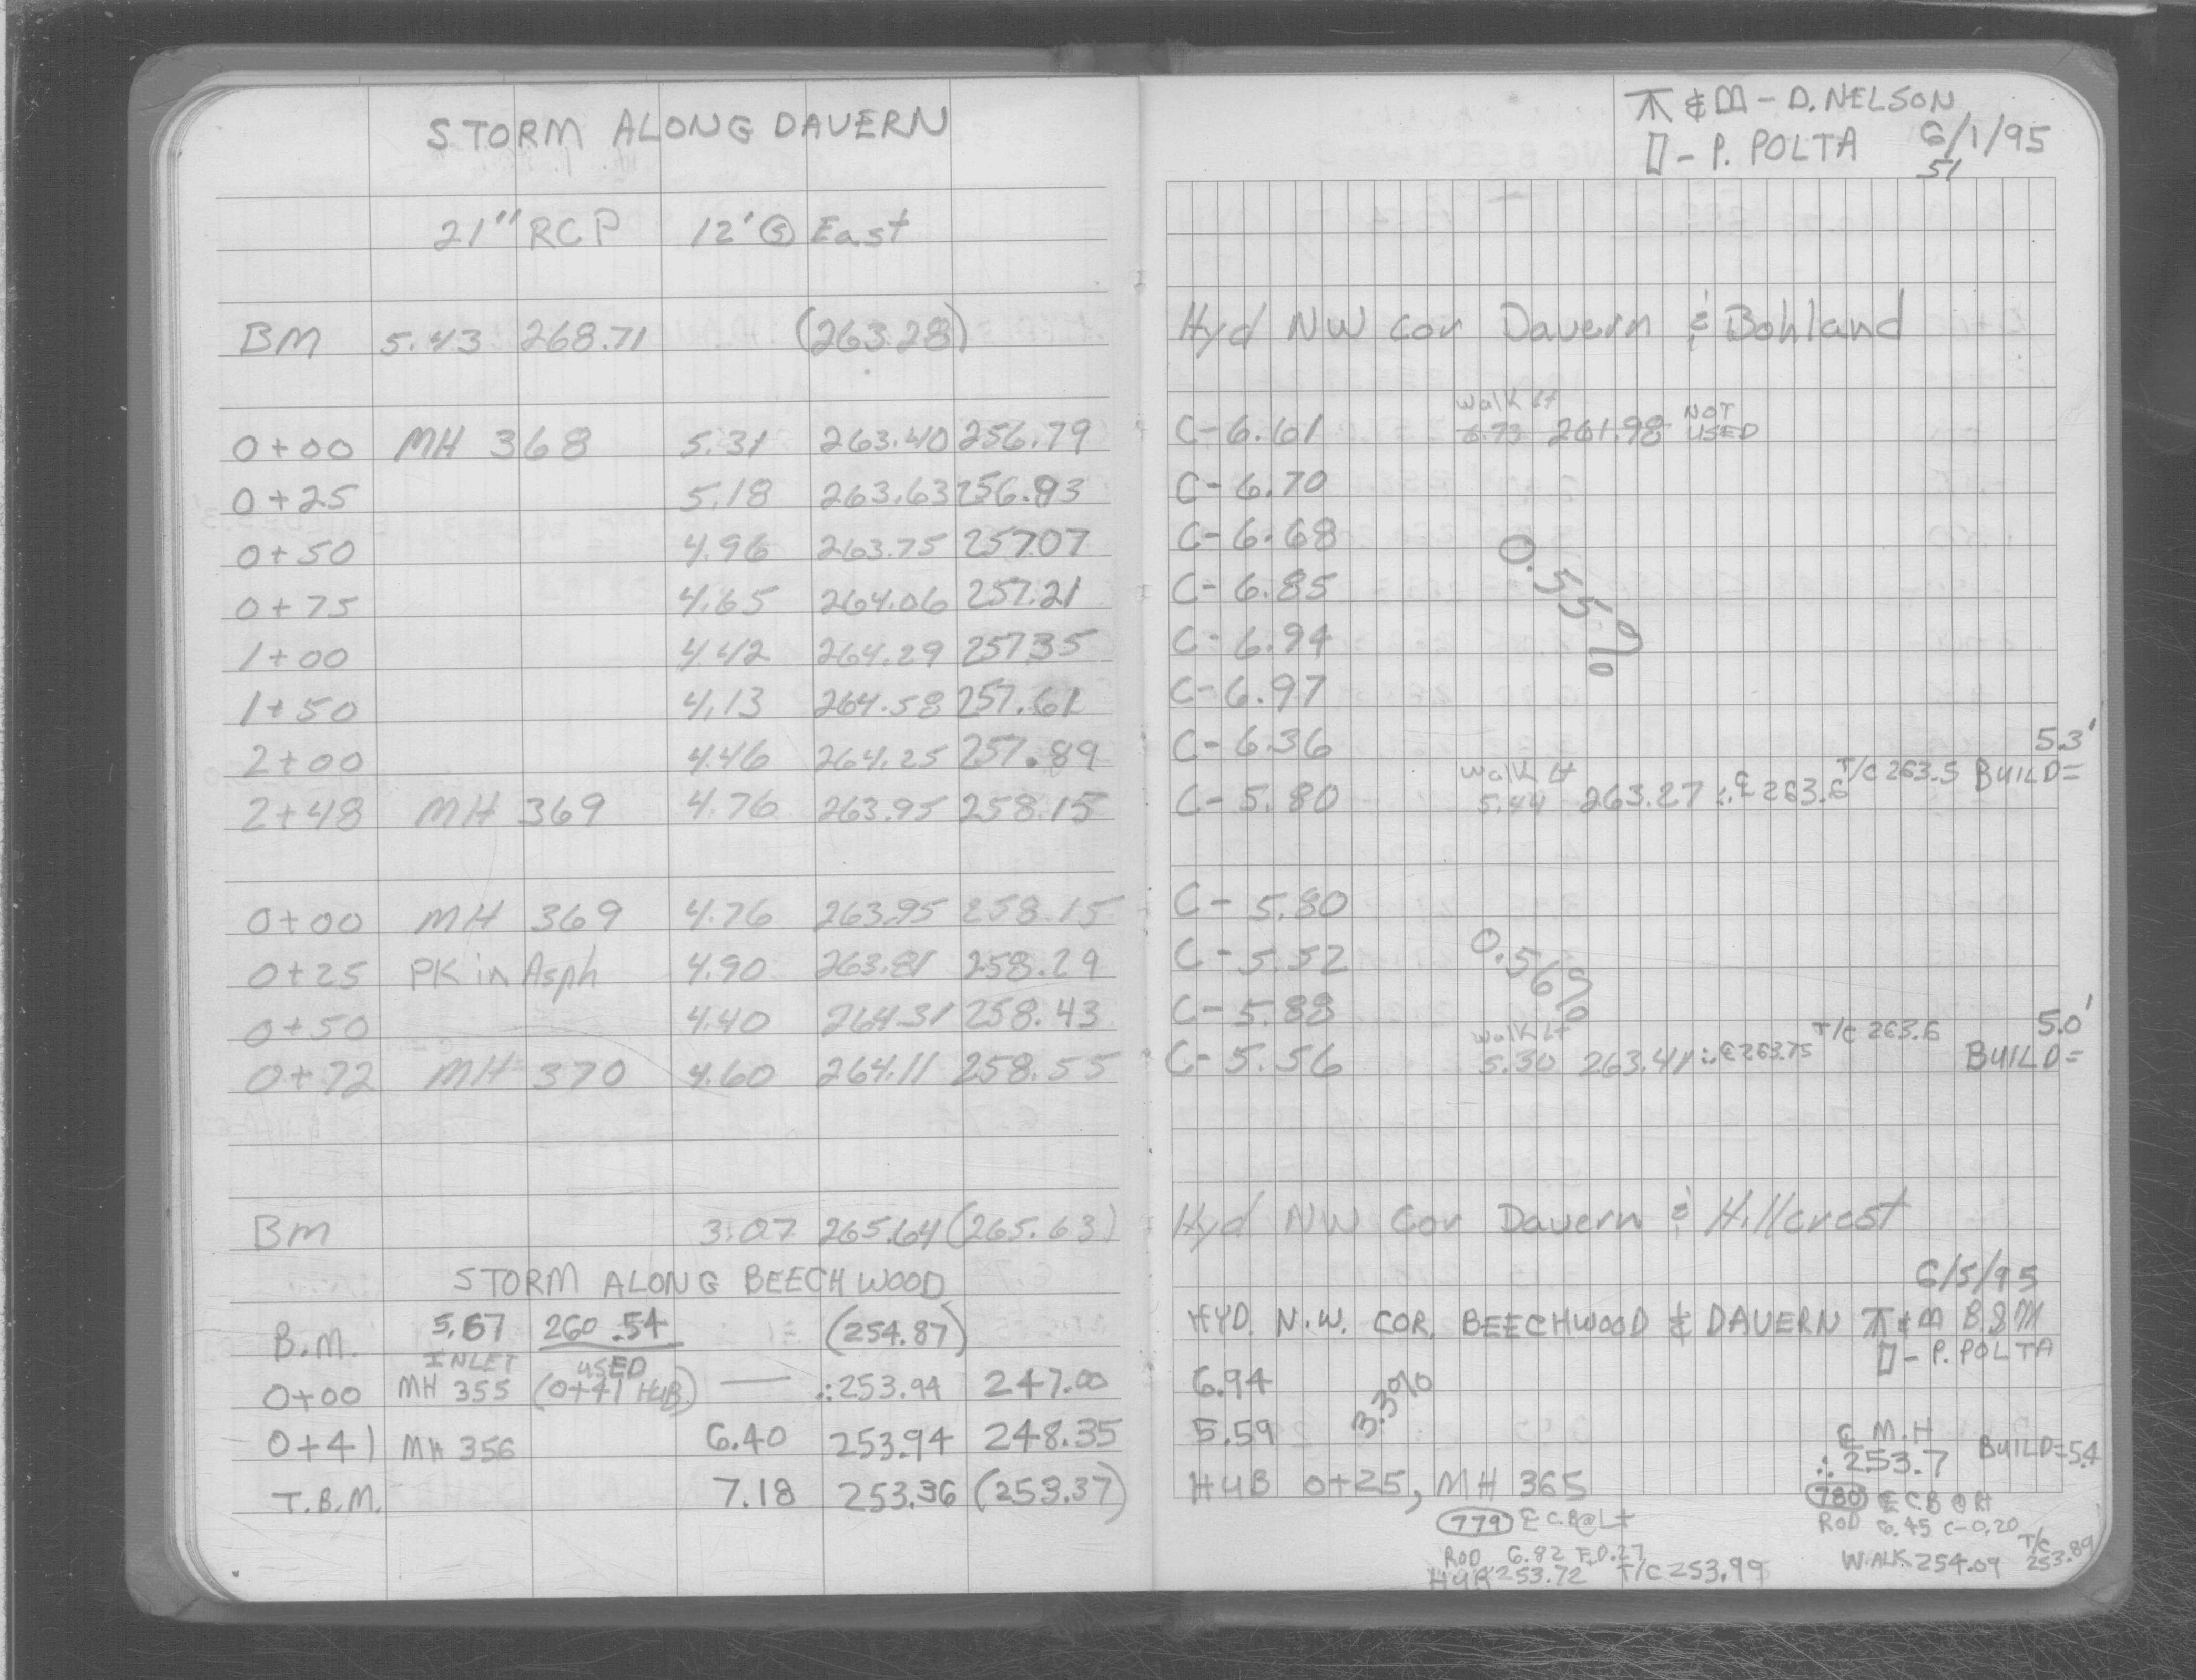 STORM ALONG DAVERN
21" RCP 12' @ East
BM 5.43 268.71 (263.28)
0+00 MH 368 5.31 263.40 256.79
0+25 5.18 263.63 256.93
0+50 4.96 263.75 257.07
0+75 4.65 264.06 257.21
1+00 4.42 264.29 257.35
1+50 4.13 264.58 257.61
2+00 4.46 264.25 257.89
2+48 MH 369 4.76 263.95 258.15
0+00 MH 369 4.76 263.95 258.15
0+25 PK in Asph 4.90 263.81 258.29
0+50 4.40 264.31 258.43
0+72 MH 370 4.60 264.11 258.55
BM 3.07 265.64 (265.63)
STORM ALONG BEECHWOOD
B.M. 5.67 260.54 (254.87)
INLET USED
0+00 MH 355 (0+41 HUB) — ∴253.94 247.00
0+41 MH 356 6.40 253.94 248.35
T.B.M. 7.18 253.36 (253.37)
⊼ & ▯▯ - D. NELSON
▯ - P. POLTA 6/1/95
51
Hyd NW Cor Davern & Bohland
Walk Lt
C-6.61 6.73 261.98 NOT USED
C-6.70
C-6.68
C-6.85
0.55%
C-6.94
C-6.97
C-6.36
Walk Lt T/C 263.5 5.3'
C-5.80 5.44 263.27 ∴ ℄ 263.6 BUILD=
C-5.80
C-5.52
0.56%
C-5.88
Walk Lt T/C 263.6 5.0'
C-5.56 5.30 263.41 ∴ ℄ 263.75 BUILD=
Hyd NW Cor Davern & Hillcrest
6/5/95
HYD. N.W. COR. BEECHWOOD & DAVERN ⊼ & ▯▯ B.S.M
▯ - P. POLTA
6.94
3.3%
5.59 ℄ M.H
∴ 253.7 BUILD=5.4
HUB 0+25, MH 365
779 ℄ C.B@Lt
ROD 6.82 F.0.27
HUB 253.72 T/C 253.99
780 ℄ C.B @ Rt
ROD 6.45 C-0.20
WALK 254.09 T/C 253.89